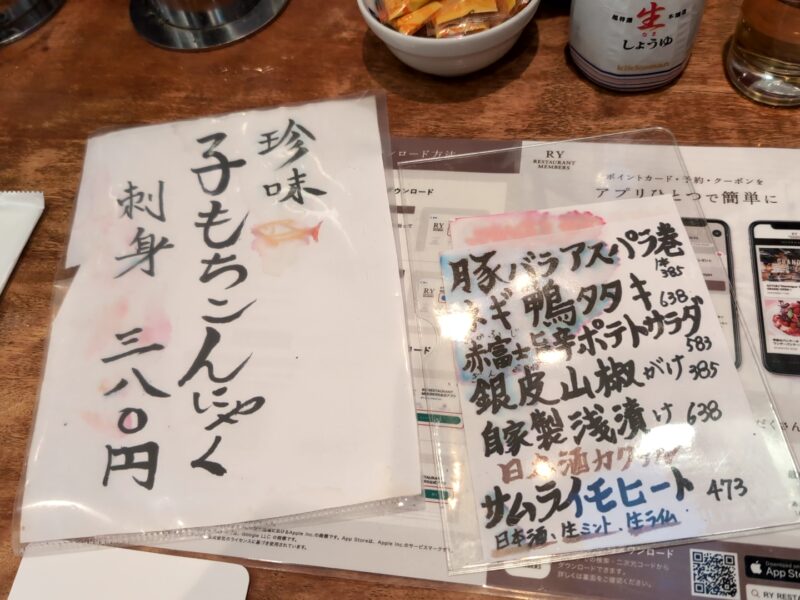 生
しょうゆ
珍味
子もちこんにゃく
刺身 三八〇円
豚バラアスパラ巻
1本 385
ネギ鴨タタキ 638
赤富士辛ポテトサラダ
583
銀皮山椒がけ 385
自家製浅漬け 638
日本酒カクテル
サムライモヒート 473
日本酒、生ミント、生ライム
RY
RESTAURANT
MEMBERS
ポイントカード・予約・クーポンを
アプリひとつで簡単に
ダウンロード
App Store
RY RESTA